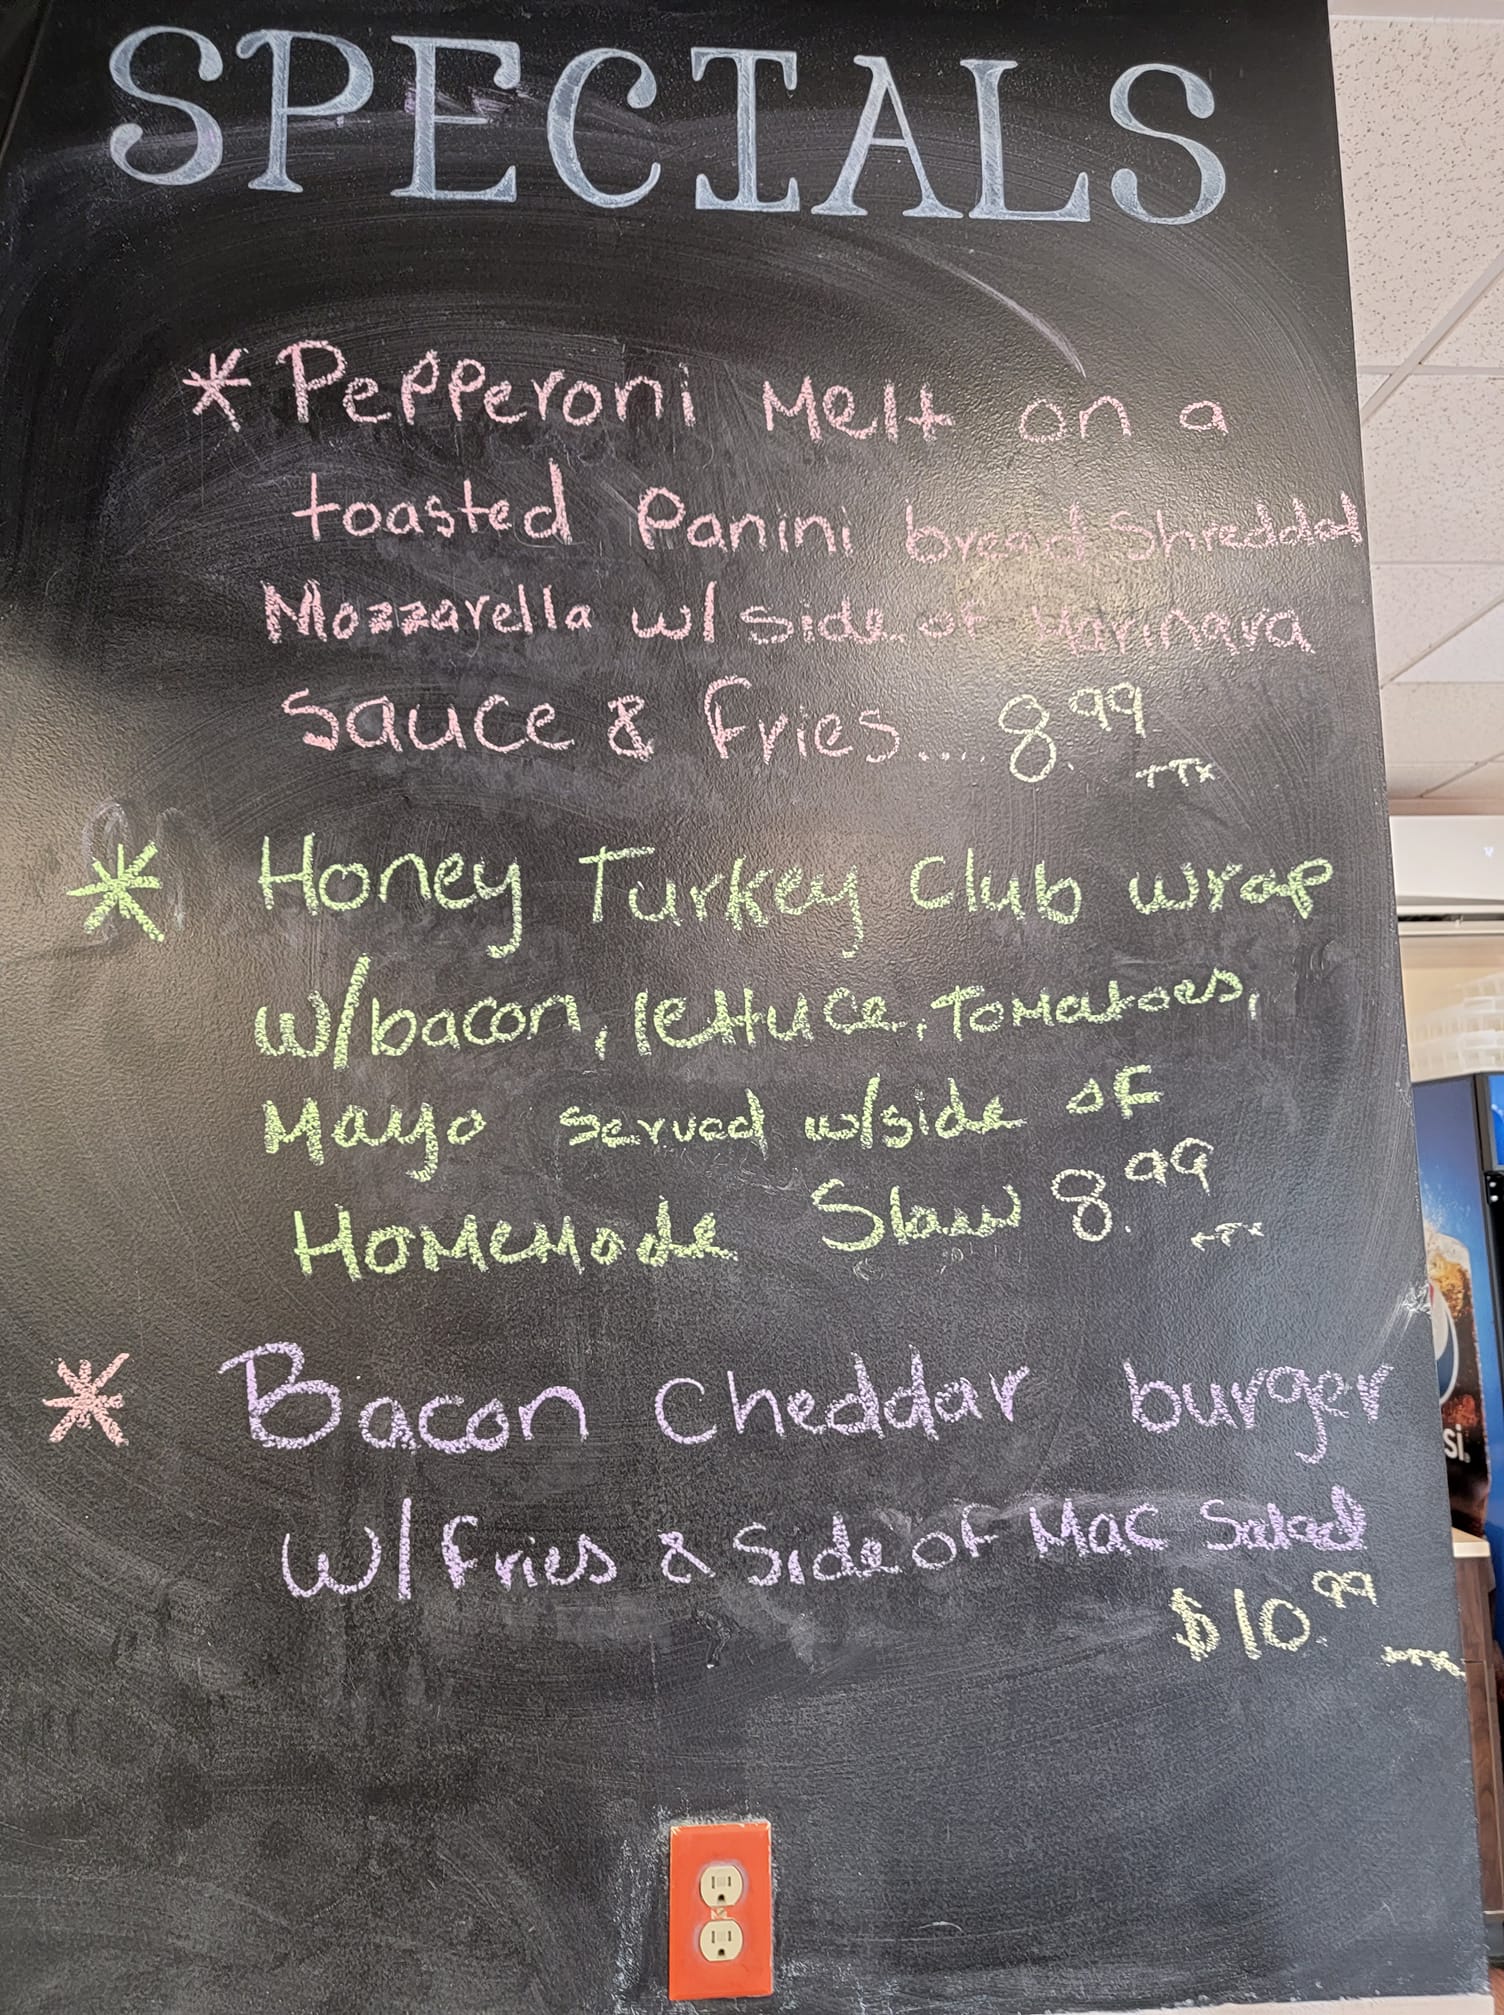 SPECIALS
* Pepperoni Melt on a
toasted Panini bread Shredded
Mozzarella w/ side of Marinara
Sauce & Fries... 8.99
+Tx
* Honey Turkey Club wrap
w/bacon, lettuce, Tomatoes,
Mayo served w/side of
Homemade Slaw 8.99
+Tx
* Bacon Cheddar burger
w/ Fries & Side of Mac Salad
$10.99
+Tx
si